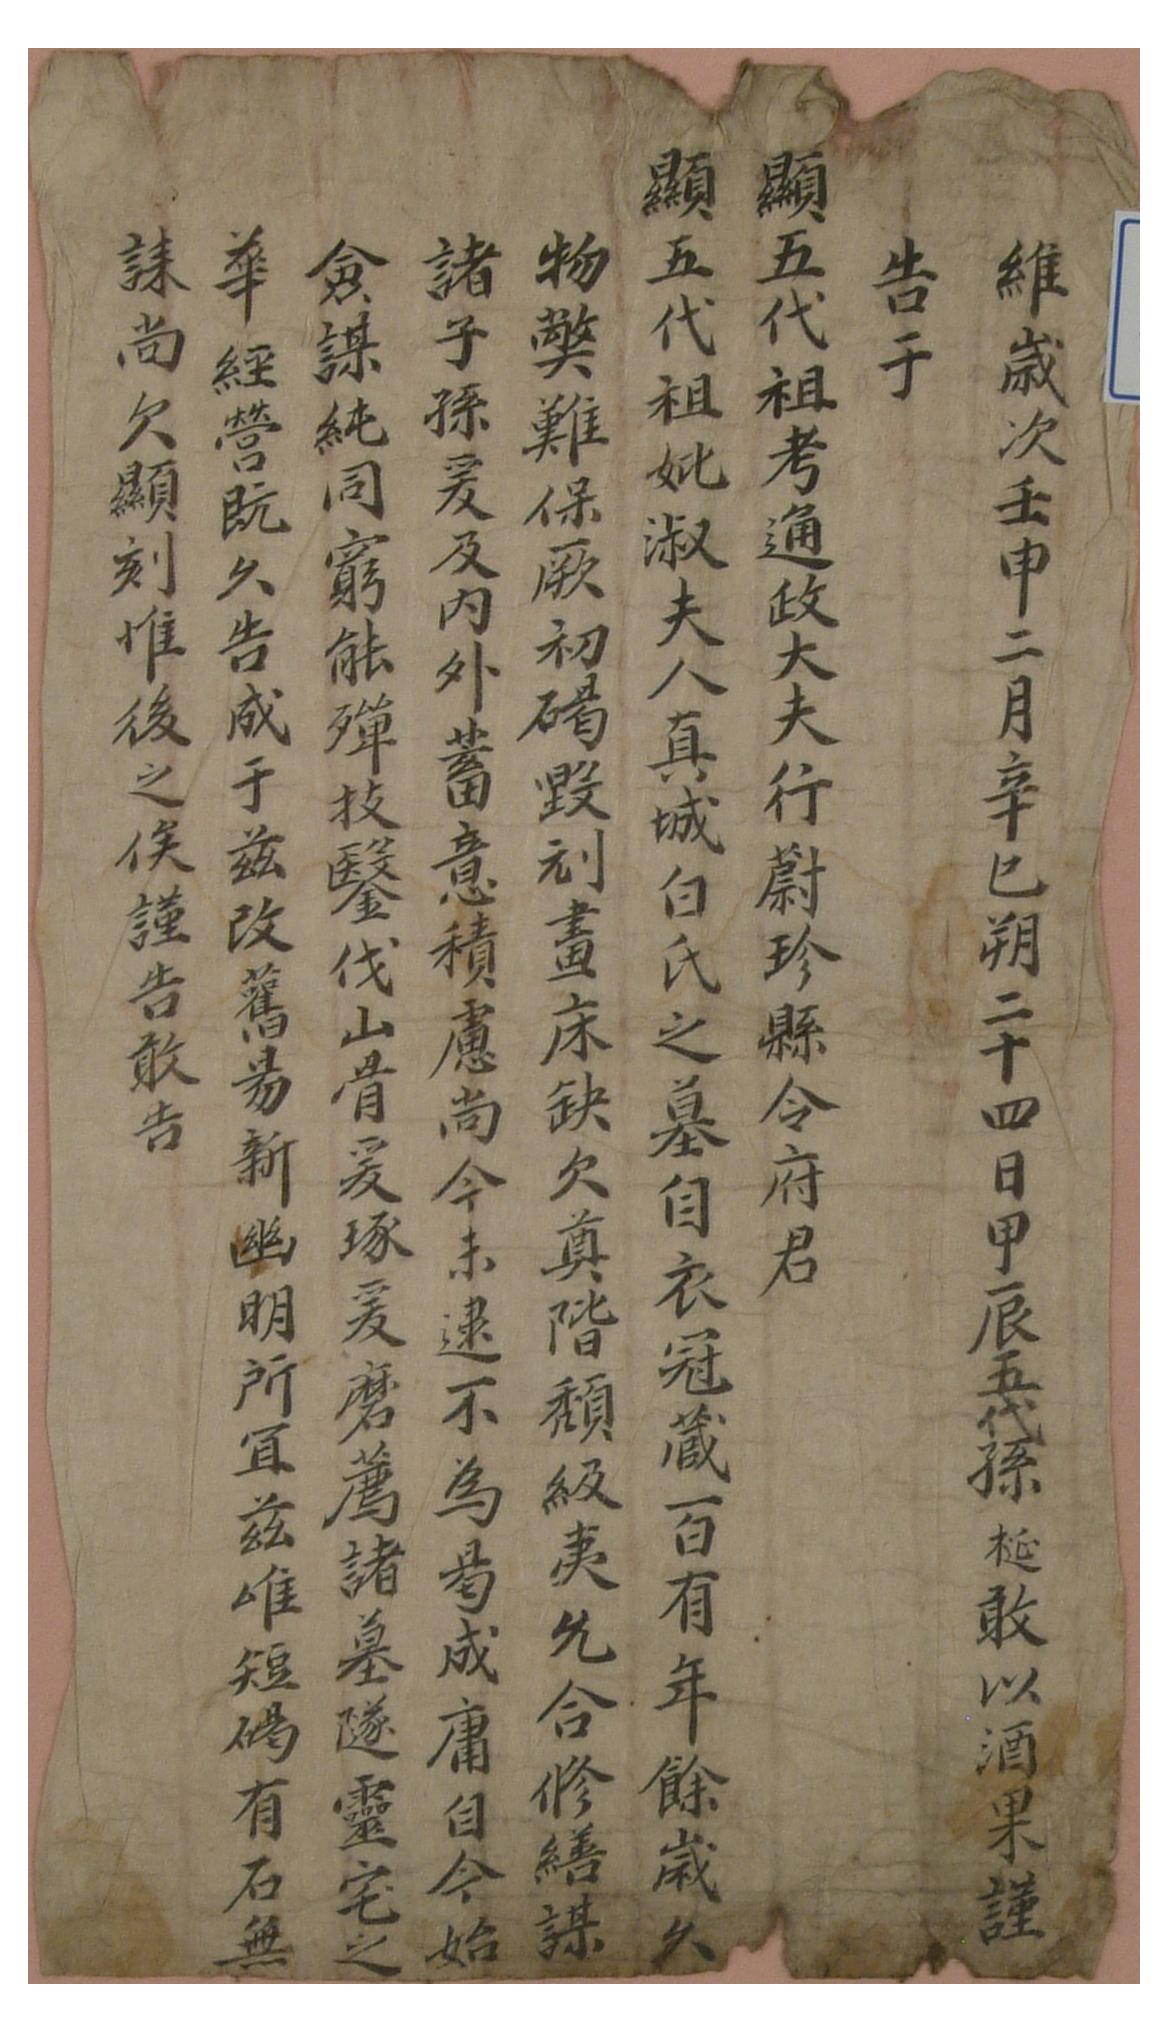 維歲次壬申二月辛巳朔二十四日甲辰五代孫梴敢以酒果謹
告于
顯五代祖考通政大夫行蔚珍縣令府君
顯五代祖妣淑夫人真城白氏之墓自衣冠蔵百有年餘歲久
物獘難保厥初碣毀刓畫床缺欠奠階頹級夷允合修繕謀
諸子孫爰及內外蓄意積慮尚今未逮不為曷成庸自今始
僉謀純同窮能殫技鑿伐山骨爰琢爰磨薦諸墓隧靈宅之
華經營旣久告成于玆改舊易新幽明所宜玆唯短碣有石無
誄尚欠顯刻惟後之俟謹告敢告